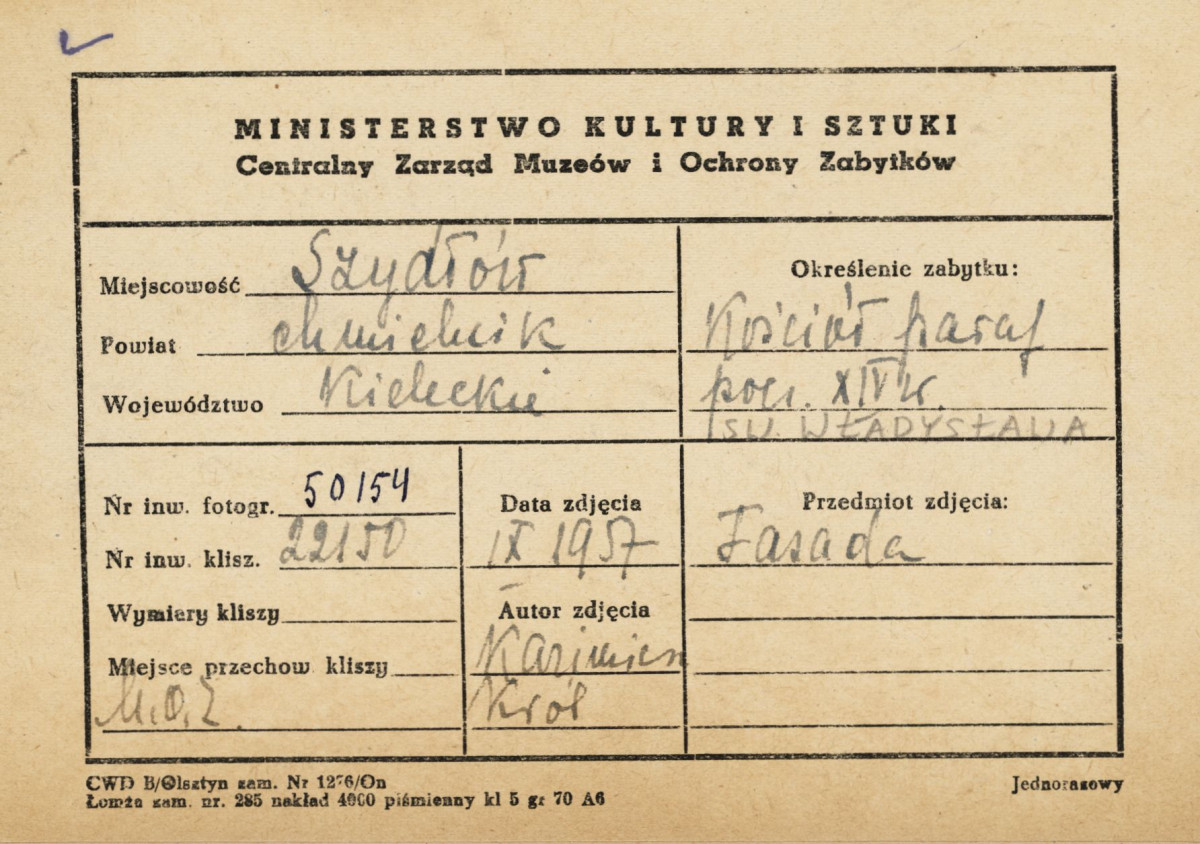 MINISTERSTWO KULTURY I SZTUKI
Centralny Zarząd Muzeów i Ochrony Zabytków
Miejscowość Szydłów
Powiat chmielnik
Województwo Kieleckie
Określenie zabytku:
Kościół paraf
pocz. XIV w.
ŚW. WŁADYSŁAWA
Nr inw. fotogr. 50154
Nr inw. klisz. 22150
Wymiary kliszy
Miejsce przechow kliszy
M.O.Z.
Data zdjęcia
IX 1957
Autor zdjęcia
Kazimierz
Król
Przedmiot zdjęcia:
Fasada
CWD B/Olsztyn zam. Nr 1276/On
Łomża zam. nr. 285 nakład 4000 piśmienny kl 5 gr 70 A6
Jednorazowy